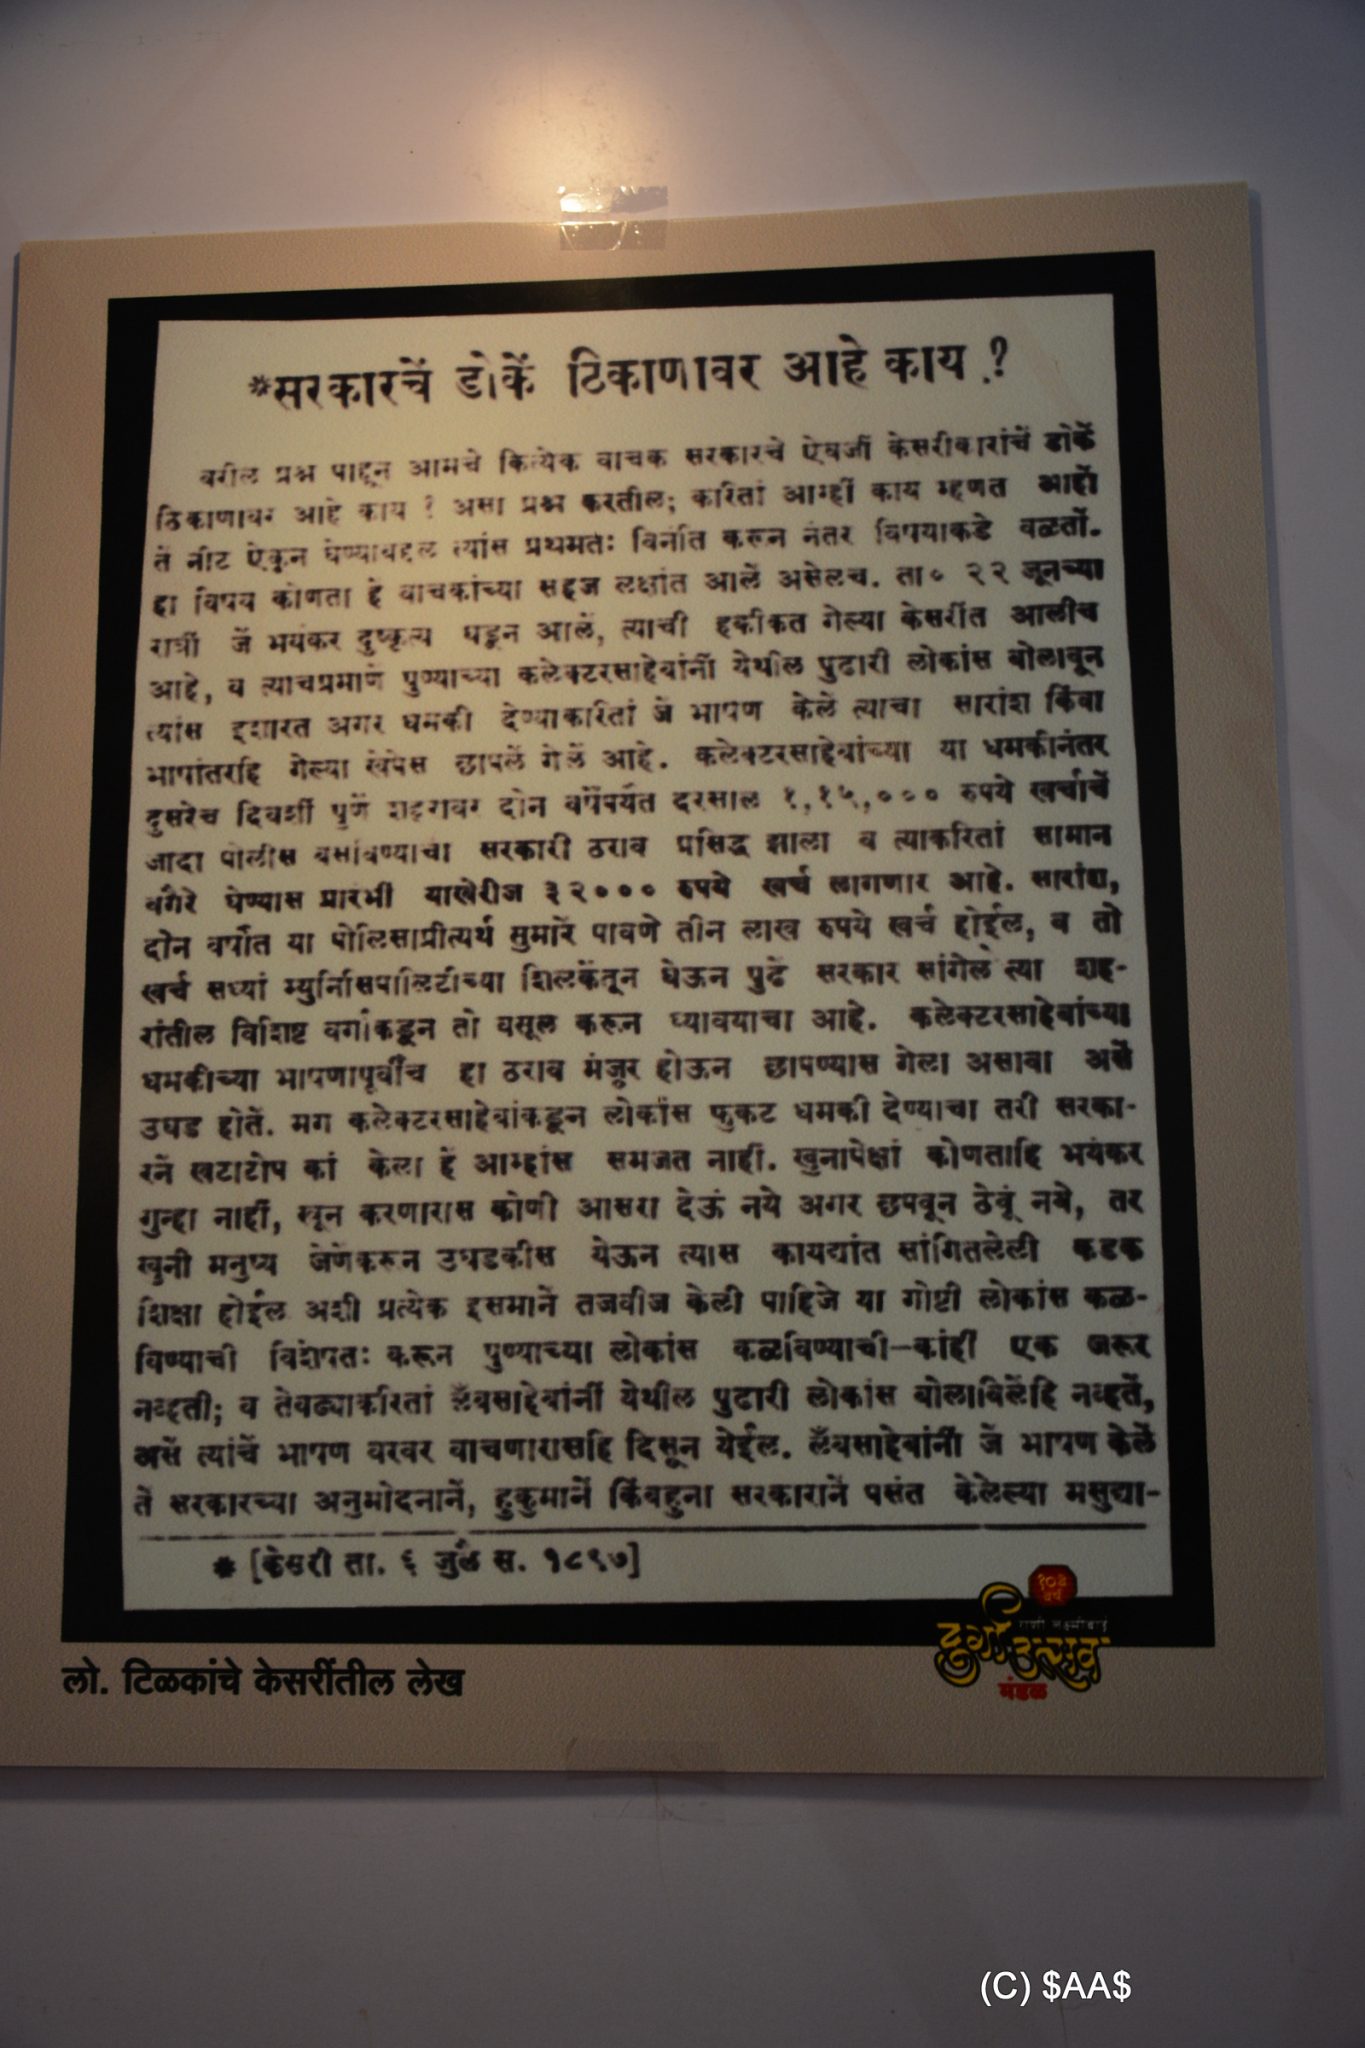 *सरकारचें डोकें ठिकाणावर आहे काय ?
वरील प्रश्न पाहून आमचे कित्येक वाचक सरकारचे ऐवजीं केसरीकारांचें डोकें
ठिकाणावर आहे काय ? असा प्रश्न करतील; करितां आम्हीं काय म्हणत आहों
तें नीट ऐकून घेण्याबद्दल त्यांस प्रथमतः विनंति करून नंतर विषयाकडे वळतों.
हा विषय कोणता हें वाचकांच्या सहज लक्षांत आलें असेलच. ता॰ २२ जूनच्या
रात्रीं जें भयंकर दुष्कृत्य घडून आलें, त्याची हकीकत गेल्या केसरींत आलीच
आहे, व त्याचप्रमाणें पुण्याच्या कलेक्टरसाहेबांनीं येथील पुढारी लोकांस बोलावून
त्यांस इशारत अगर धमकी देण्याकरितां जें भाषण केलें त्याचा सारांश किंवा
भाषांतरहि गेल्या खेपेस छापलें गेलें आहे. कलेक्टरसाहेबांच्या या धमकीनंतर
दुसरेच दिवशीं पुणें शहरावर दोन वर्षेंपर्यंत दरसाल १,१५,००० रुपये खर्चाचें
जादा पोलीस बसविण्याचा सरकारी ठराव प्रसिद्ध झाला व त्याकरितां सामान
वगैरे घेण्यास प्रारंभीं याखेरीज ३२००० रुपये खर्च लागणार आहे. सारांश,
दोन वर्षांत या पोलिसाप्रीत्यर्थ सुमारें पावणे तीन लाख रुपये खर्च होईल, व तो
खर्च सध्यां म्युनिसिपालिटीच्या शिलकेंतून घेऊन पुढें सरकार सांगेल त्या शह-
रांतील विशिष्ट वर्गाकडून तो वसूल करून घ्यावयाचा आहे. कलेक्टरसाहेबांच्या
धमकीच्या भाषणापूर्वींच हा ठराव मंजूर होऊन छापण्यास गेला असावा असें
उघड होतें. मग कलेक्टरसाहेबांकडून लोकांस फुकट धमकी देण्याचा तरी सरका-
रनें खटाटोप कां केला हें आम्हांस समजत नाहीं. खुनापेक्षां कोणताहि भयंकर
गुन्हा नाहीं, खून करणारास कोणी आसरा देऊं नये अगर छपवून ठेवूं नये, तर
खुनी मनुष्य जेणेंकरून उघडकीस येऊन त्यास कायद्यांत सांगितलेली कडक
शिक्षा होईल अशी प्रत्येक इसमानें तजवीज केली पाहिजे या गोष्टी लोकांस कळ-
विण्याची विशेषतः करून पुण्याच्या लोकांस कळविण्याची—कांहीं एक जरूर
नव्हती; व तेवढ्याकरितां लँबसाहेबांनीं येथील पुढारी लोकांस बोलाविलेंहि नव्हतें,
असें त्यांचें भाषण वरवर वाचणारासहि दिसून येईल. लँबसाहेबांनीं जें भाषण केलें
तें सरकारच्या अनुमोदनानें, हुकुमानें किंबहुना सरकारानें पसंत केलेल्या मसुद्या-
* [केसरी ता. ६ जुलै स. १८९७]
राणी लक्ष्मीबाई
दुर्गा उत्सव
मंडळ
लो. टिळकांचे केसरींतील लेख
(C) $AA$